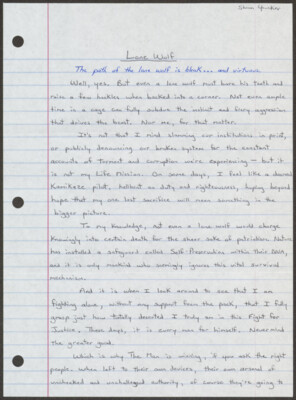 Lone Wolf
The path of the lone wolf is bleak... and virtuous.
Well, yes. But even a lone wolf must bare his teeth and
raise a few hackles when backed into a corner. Not even ample
time in a cage can fully subdue the violent and fiery aggression
that drives the beast. Nor me, for that matter.
It's not that I mind slamming our institutions in print,
or publicly denouncing our broken system for the constant
accounts of Torment and corruption we're experiencing - but it
is not my Life Mission. On some days, I feel like a doomed
Kamikaze pilot, hellbent on duty and righteousness, hoping beyond
hope that my one last sacrifice will mean something in the
bigger picture.
To my knowledge, not even a lone wolf would charge
knowingly into certain death for the sheer sake of patriotism. Nature
has installed a safeguard called Self-Preservation within their DNA,
and it is only mankind who seemingly ignores this vital survival
mechanism.
And it is when I look around to see that I am
fighting alone, without any support from the pack, that I fully
grasp just how totally devoted I truly am in this Fight for
Justice. These days, it is every man for himself. Never mind
the greater good.
Which is why The Man is winning, if you ask the right
people. When left to their own devices, their own arsenal of
unchecked and unchallenged authority, of course they're going to